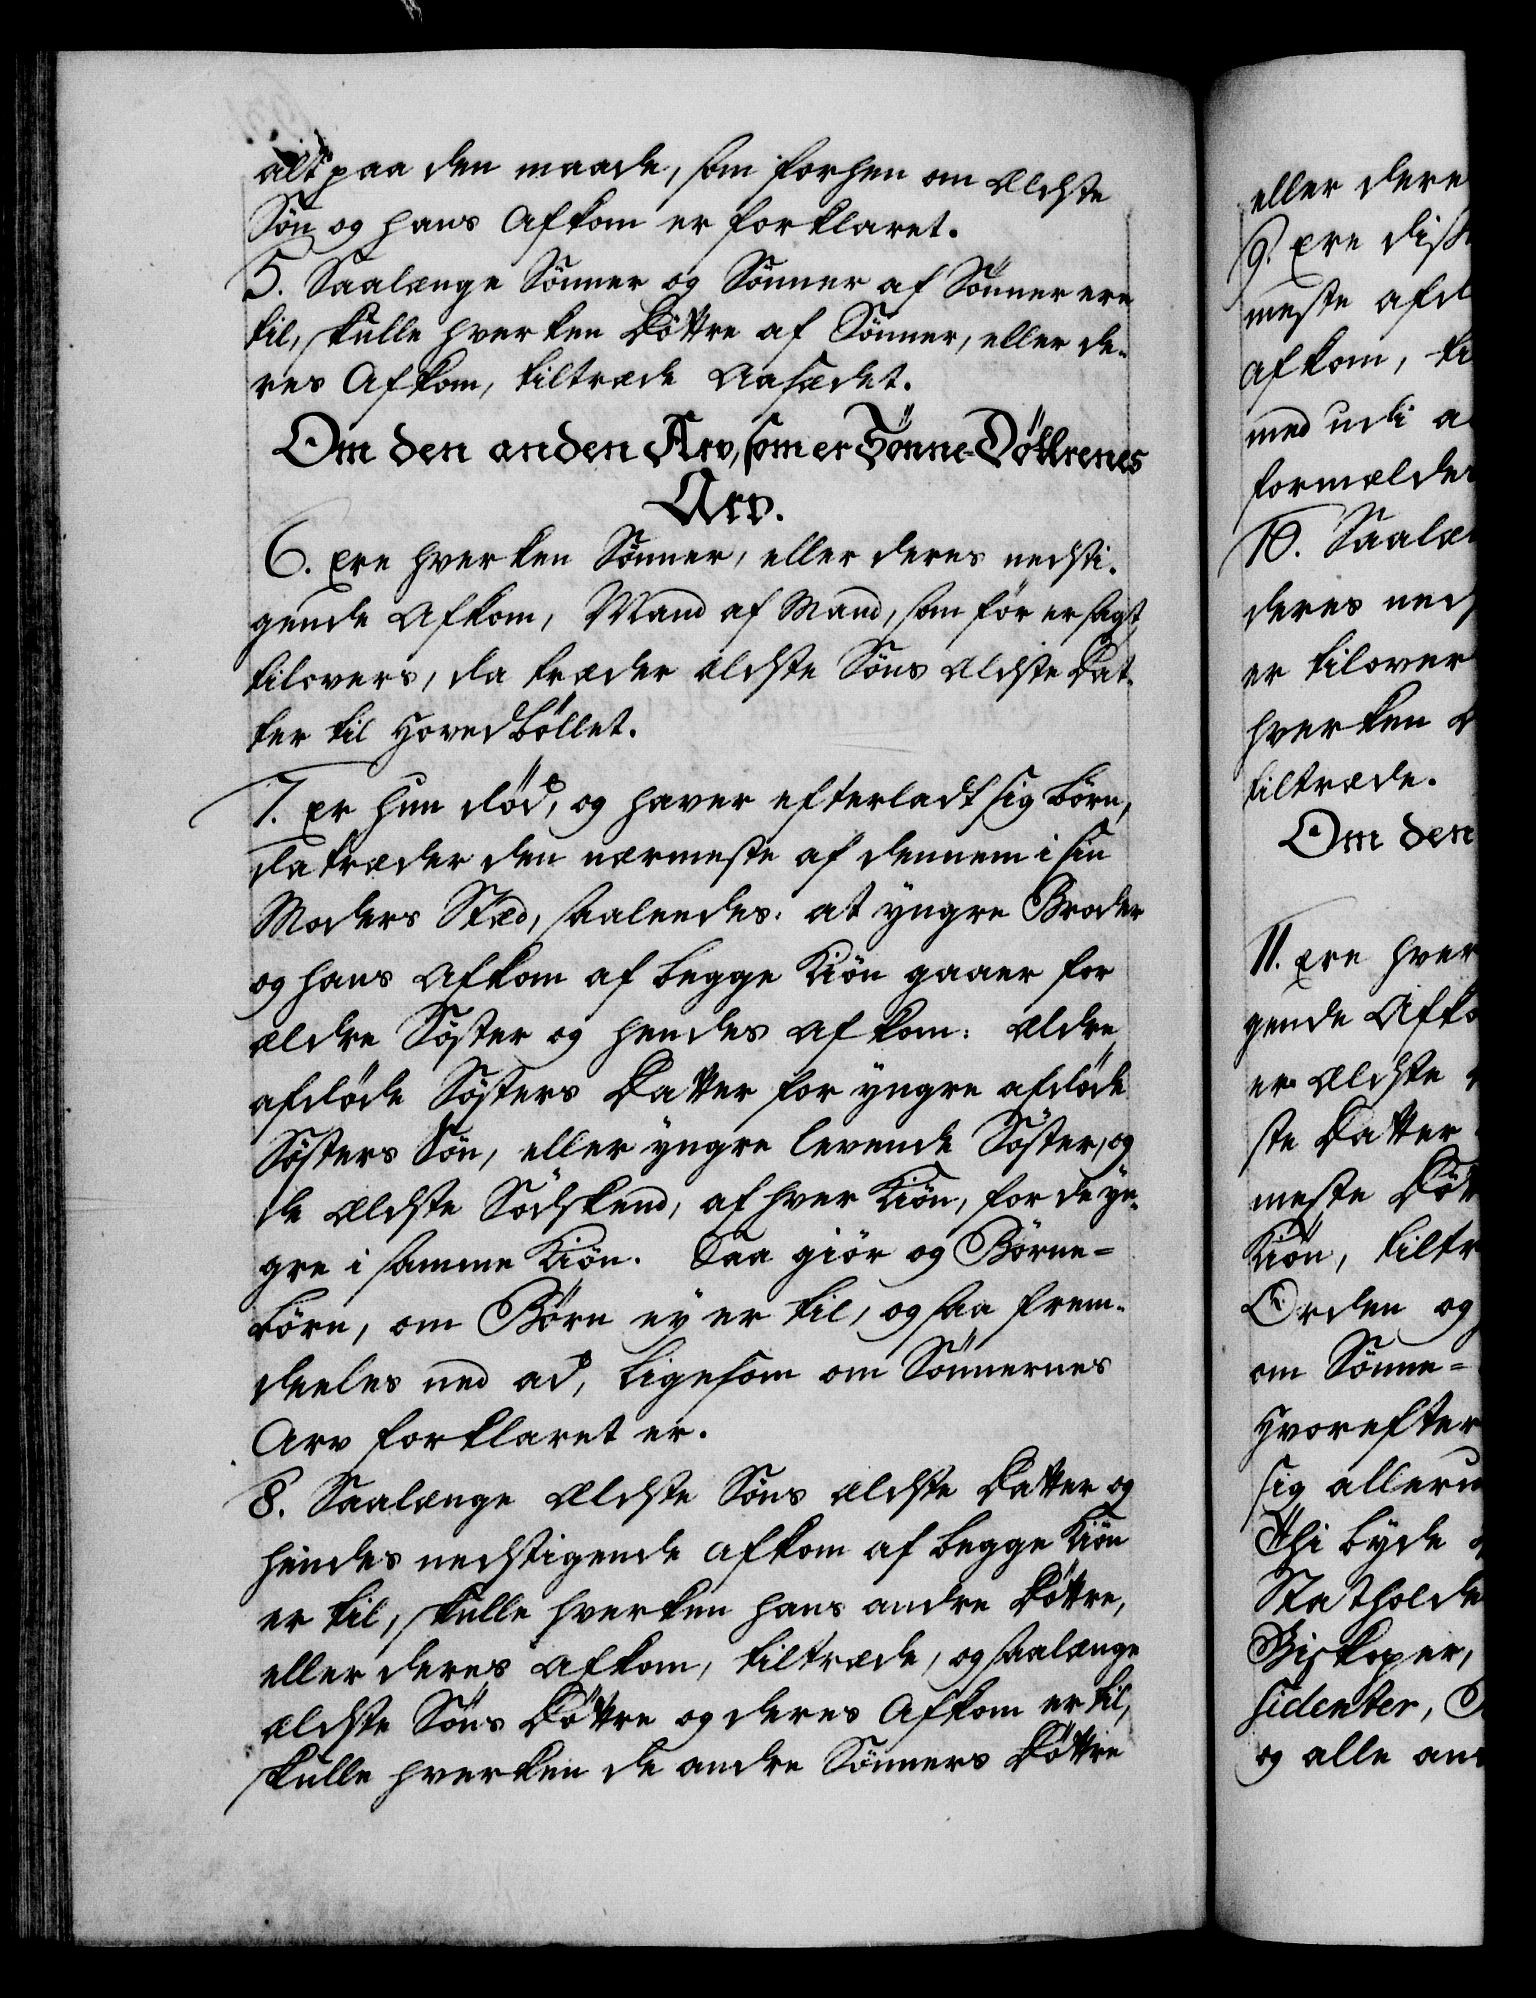 alt paa den maade, som forhen om Ældste
Søn og hans Afkom er forklaret.
5. Saalænge Sönner og Sönner af Sönner ere
til, skulle hverken Döttre af Sönner, eller de-
res Afkom, tiltræde Aasædet.
Om den anden Arv, som er Sönne-Döttrenes
Arv.
6. Ere hverken Sönner, eller deres nedsti-
gende Afkom, Mand af Mand, som för er sagt,
tilovers, da træder ældste Söns ældste Dat-
ter til Hovedböllet.
7. Er hun död, og haver efterladt sig börn,
da træder den nærmeste af dennem i sin
Moders Stæd, saaledes: at yngre Broder
og hans Afkom af begge Kiön gaaer for
ældre Söster og hendes Afkom: ældre
afdöde Sösters Datter for yngre afdöde
Sösters Sön, eller yngre levende Söster, og
de Ældste Södskend, af hver Kiön, for de yn-
gre i samme Kiön. Saa giör og Börne-
börn, om Börn ey er til, og saa frem-
deeles ned ad, ligesom om Sönnernes
Arv forklaret er.
8. Saalænge Ældste Söns ældste Datter og
hendes nedstigende Afkom af begge Kiön
er til, skulle hverken hans andre Döttre,
eller deres Afkom, tiltræde, og saalænge
ældste Söns Döttre og deres Afkom er til,
skulle hverken de andre Sönners Döttre
eller dere
9. Ere diss
meste afd
afkom, ti
med udi a
formælder
10. Saalæn
deres neds
er tilover
hverken D
tiltræde.
Om den
11. Ere hver
gende Afko
er Ældste
ste Datter
meste Döt
Kiön, tiltr
Orden og
om Sönne-
Hvorefter
sig alleru
Thi byde
Statholde
Biskoper,
sidenter,
og alle and